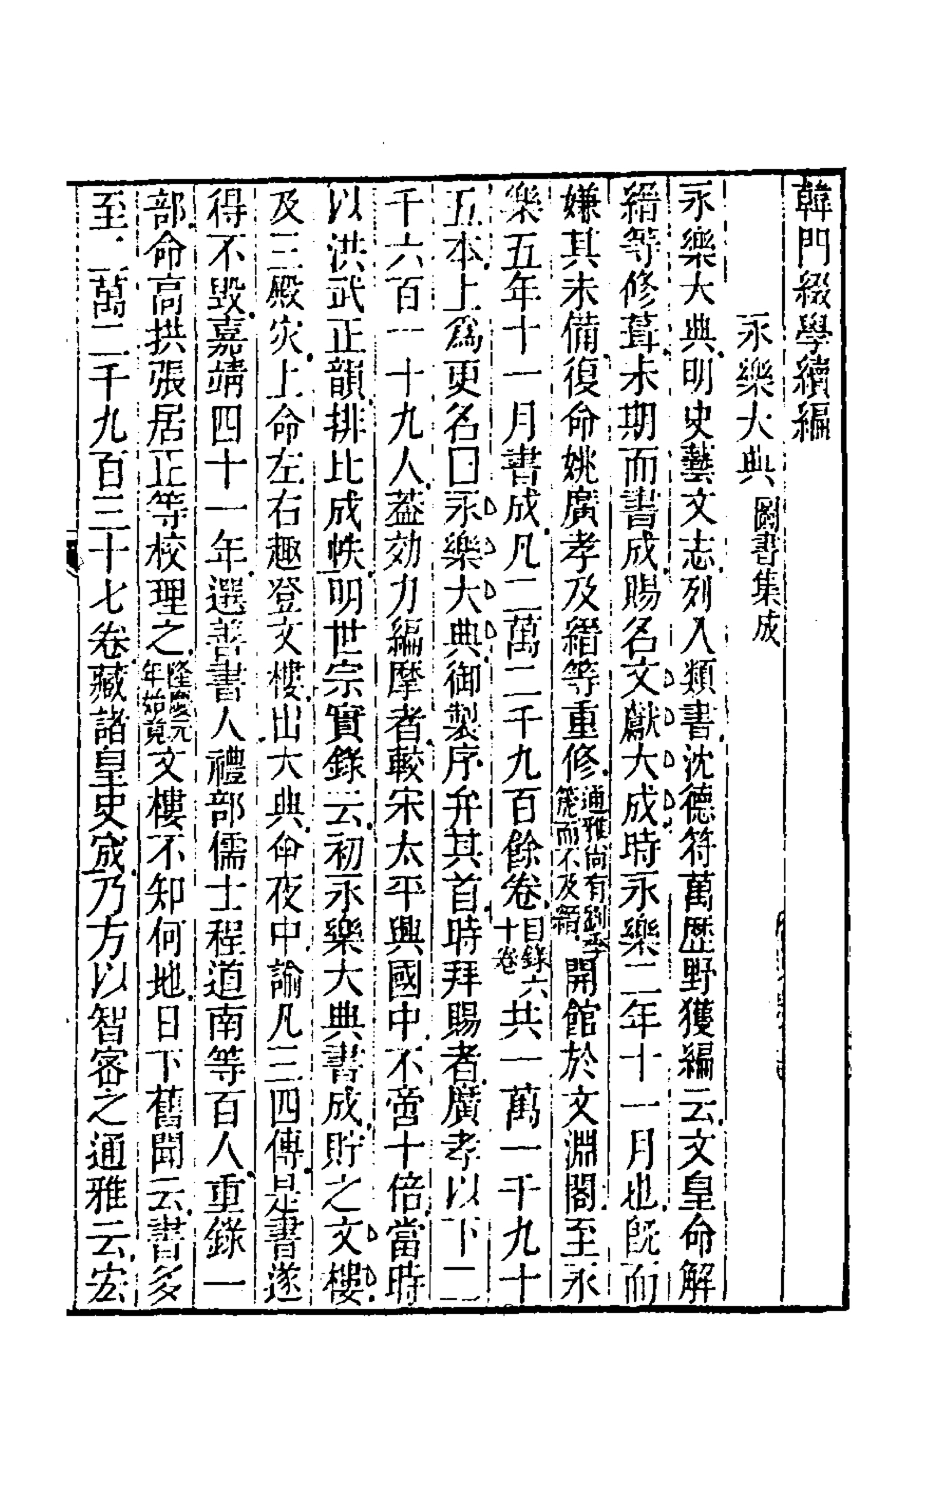 韓門綴學續編
永樂大典圖書集成
永樂大典明史藝文志列入類書沈德符萬歴野獲編云文皇命解
縉等修葺未期而書成賜名文獻大成時永樂二年十一月也旣而
嫌其未備復命姚廣孝及縉等重修通雅尚有劉季箎而不及縉開館於文淵閣至永
樂五年十一月書成凡二萬二千九百餘卷目錄六十卷共一萬一千九十
五本上爲更名曰永樂大典御製序弁其首時拜賜者廣孝以下二
千六百一十九人葢効力編摩者較宋太平興國中不啻十倍當時
以洪武正韻排比成帙明世宗實錄云初永樂大典書成貯之文樓
及三殿灾上命左右趣登文樓出大典命夜中諭凡三四傳是書遂
得不毀嘉靖四十一年選善書人禮部儒士程道南等百人重錄一
部命高拱張居正等校理之隆慶元年始竟文樓不知何地日下舊聞云書多
至二萬二千九百三十七卷藏諸皇史宬乃方以智密之通雅云宏